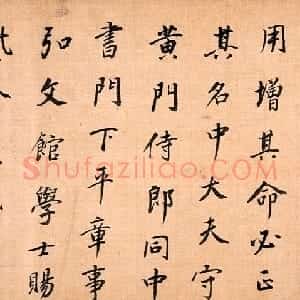 用增其命必正
其名中大夫守
黄門侍郎同中
書門下平章事
弘文館學士賜
Shufaziliao.COM